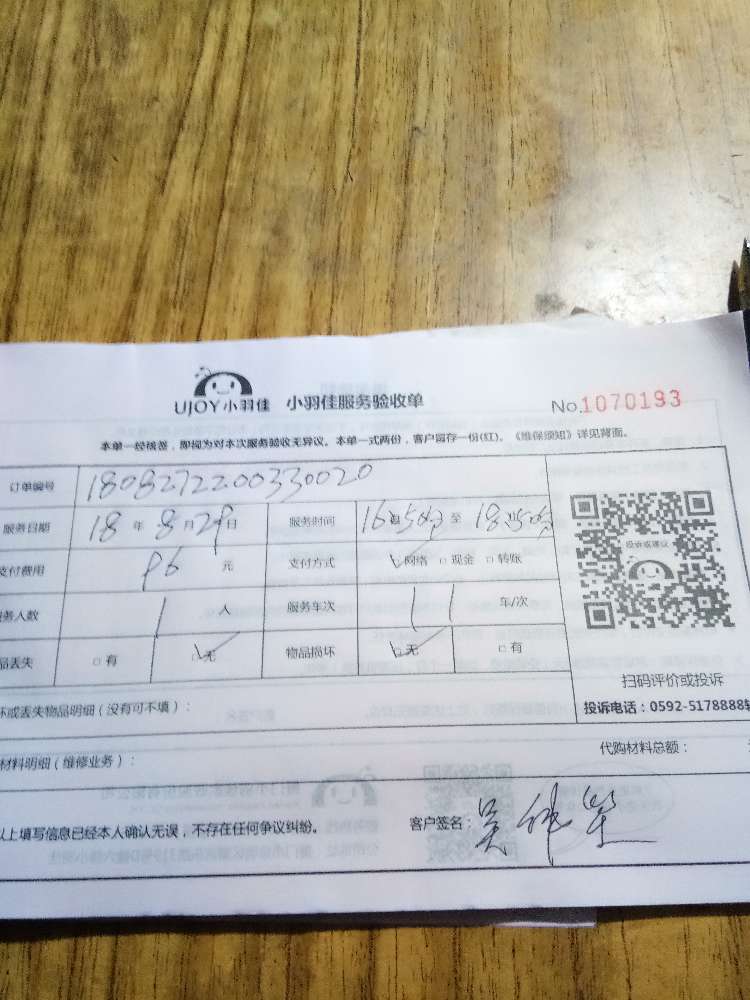 UJOY小羽佳 小羽佳服务验收单 No.1070193
本单一经核签，即视为对本次服务验收无异议。本单一式两份，客户留存一份(红)。《维保须知》详见背面。
订单编号 1808272200330020
服务日期 18年8月29日 服务时间 至
支付费用 96元 支付方式 □网络 □现金 □转账
务人数 1人 服务车次 11 车/次
品丢失 □有 □无 物品损坏 □无 □有
投诉或建议
扫码评价或投诉
投诉电话：0592-5178888转
坏或丢失物品明细（没有可不填）：
材料明细（维修业务）： 代购材料总额：
以上填写信息已经本人确认无误，不存在任何争议纠纷。 客户签名：吴